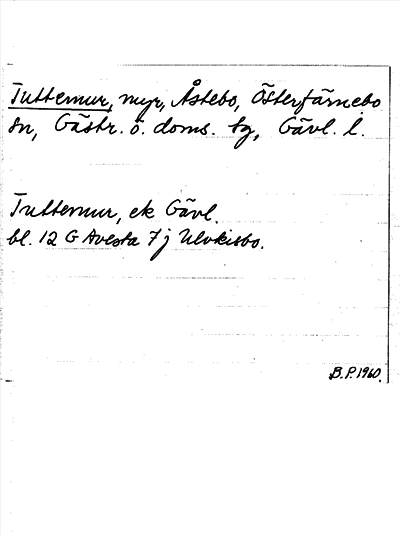 Tuttemur, myr, Åstebo, Österfärnebo
sn, Gästr. ö. doms. tg, Gävl. l.
Tuttemur, ek Gävl.
bl. 12 G Avesta 7 j Ulvkisbo.
B.P. 1960.